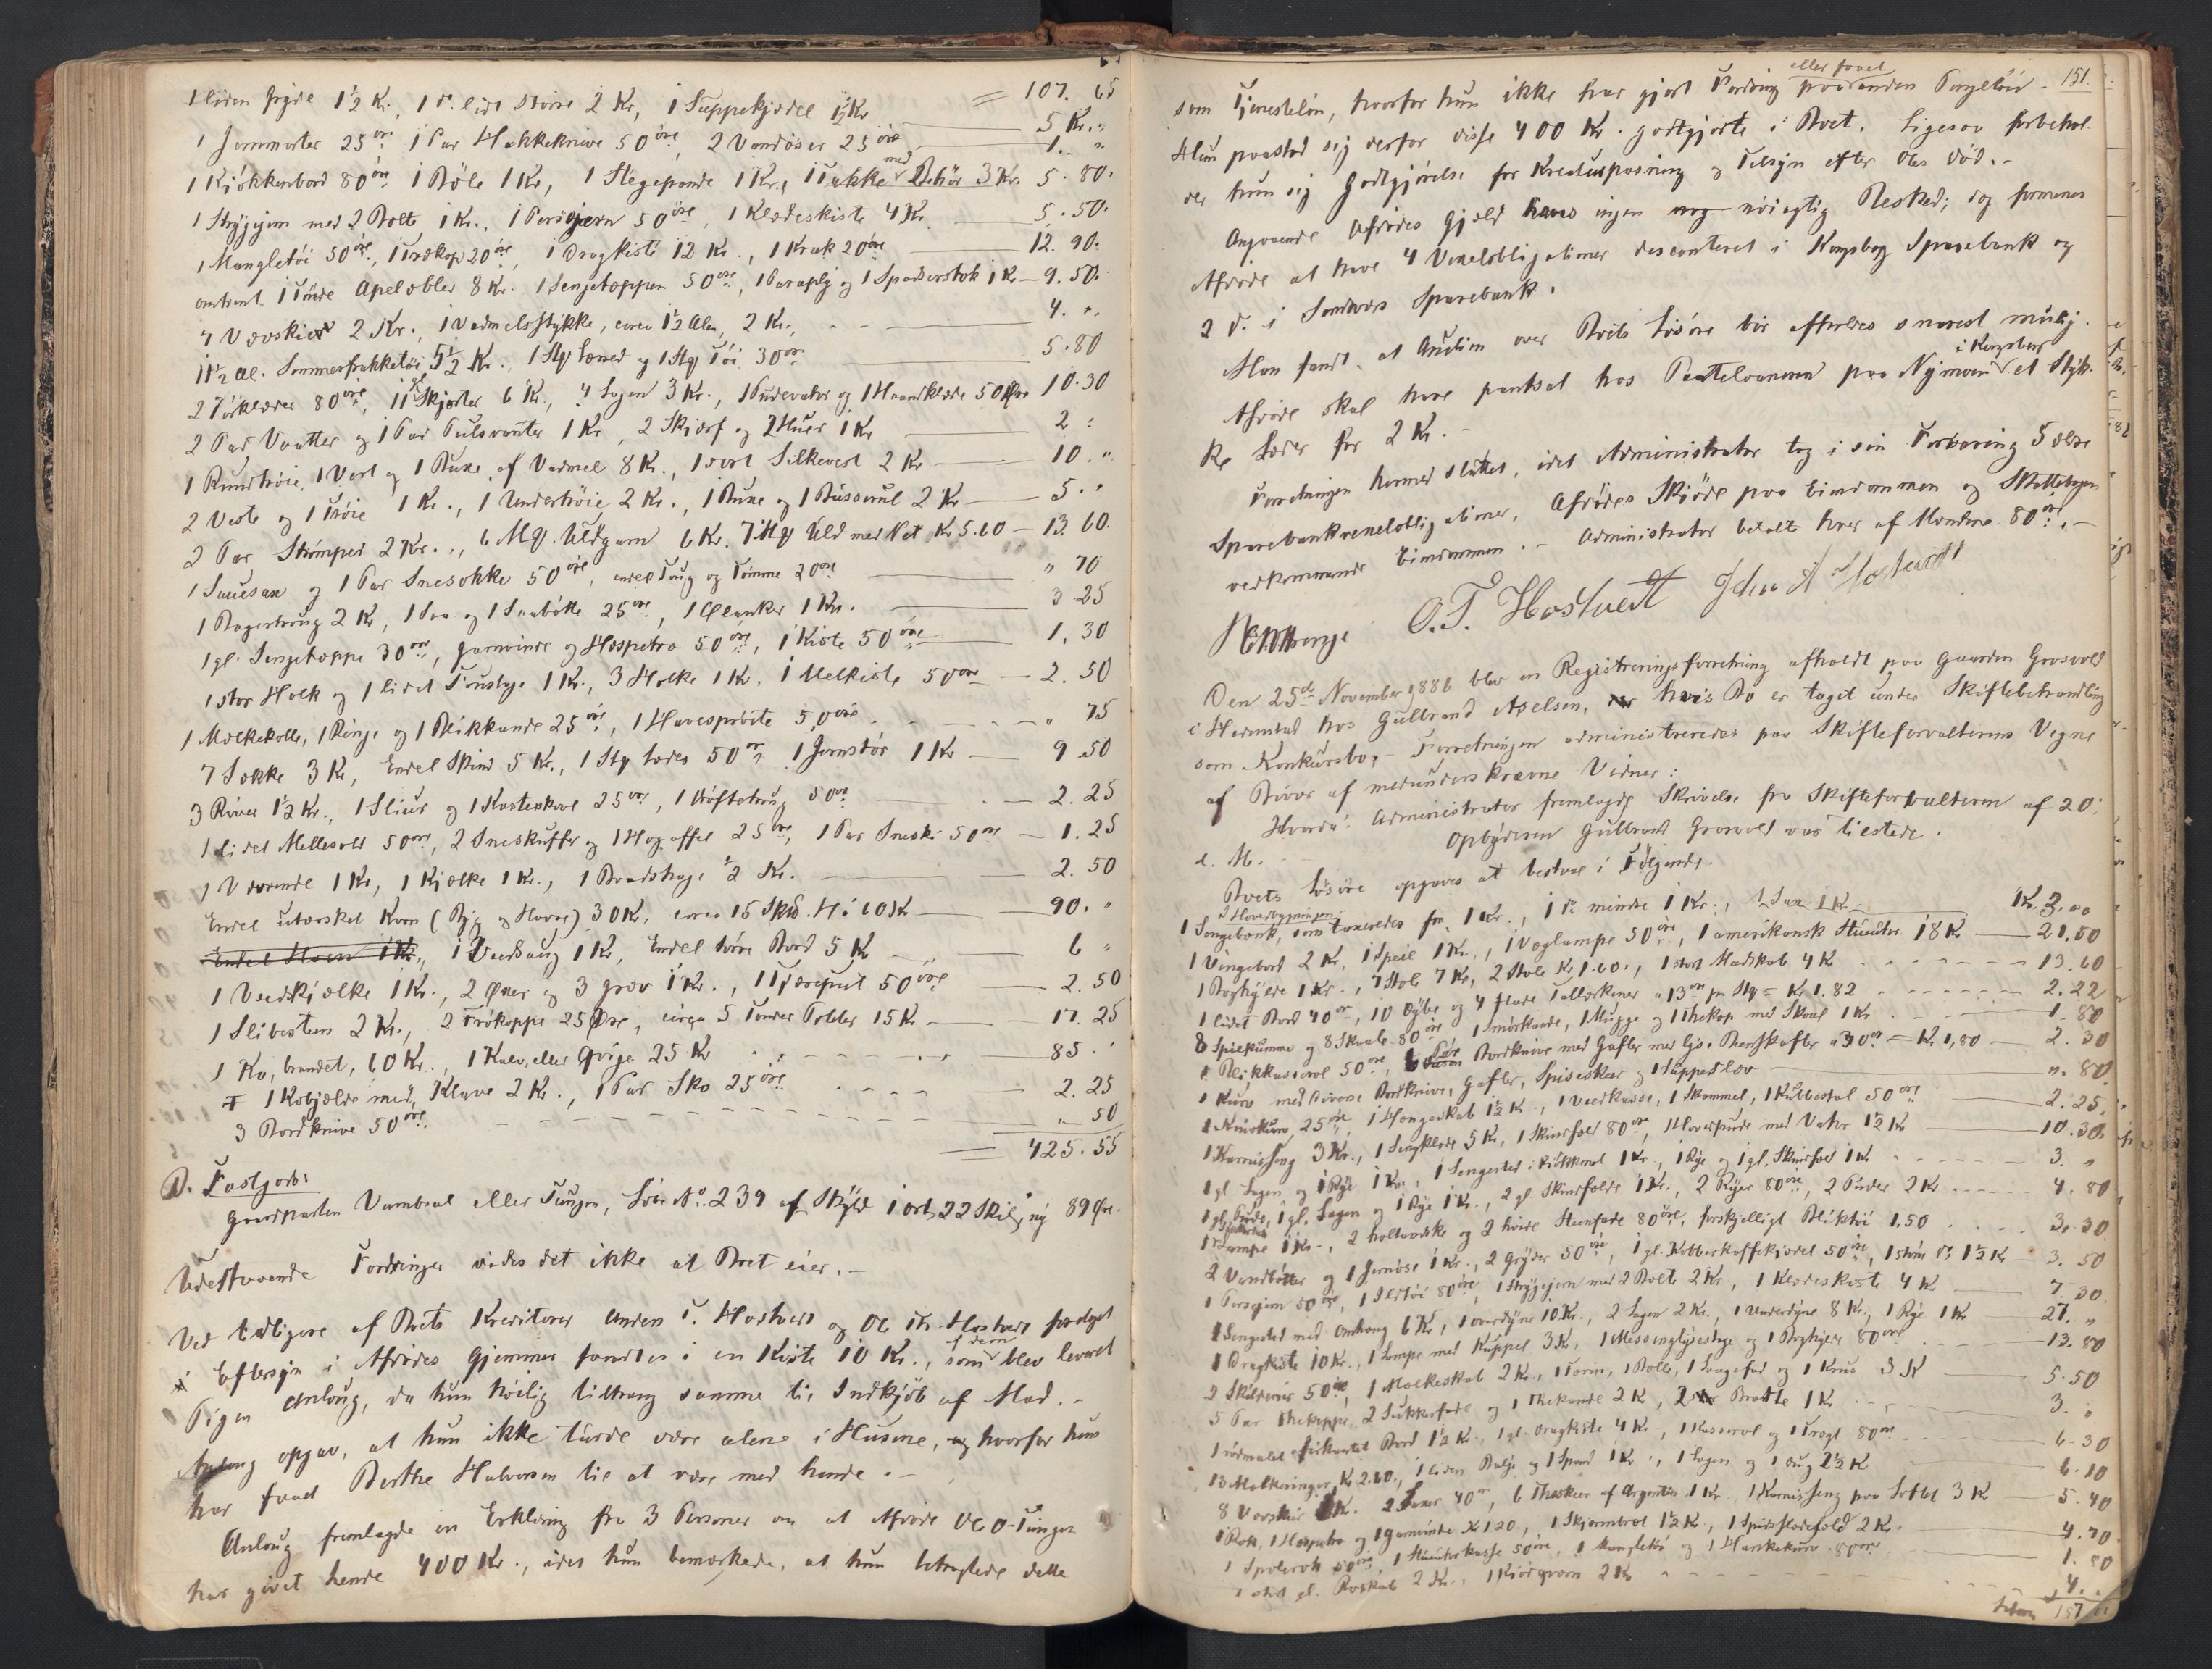 = 107. 65
1 liden Gryde 1½ Kr., 1 do. lidt større 2 Kr, 1 Suppekjedel 1½ Kr — 5 Kr. "
1 Jernmorter 25 øre 1 Par Hakkeknive 50 øre, 2 Vandøser 25 øre — 1. "
1 Kjøkkenbord 80 øre 1 Bøle 1 Kr, 1 Stegepande 1 Kr., 1 Takke med Behør 3 Kr. 5. 80.
1 Strygejern med 2 Bolt 1 Kr., 1 Persejern 50 øre, 1 Klædeskiste 4 Kr. — 5. 50.
1 Mangletøi 50 øre, 1 Trækop 20 øre, 1 Dragkiste 12 Kr., 1 Krak 20 øre — 12. 90.
omtrent 1 Tønde Apelæbler 8 Kr. 1 Sengetæppen 50 øre, 1 Paraply og 1 Spadserstok 1 Kr — 9. 50.
4 Vævskier 2 Kr., 1 Vadmelsstykke, circa 1½ Alen, 2 Kr., — 4. ".
11½ Al. Sommerfrakketøi 5½ Kr., 1 Stk Lærred og 1 Stk Tøi 30 øre — 5. 80
2 Tørklæder 80 øre, 11 Skjorter 6 Kr., 4 Lagen 3 Kr., 1 Pudevahr og 1 Haandklæde 50 Øre 10. 30
2 Par Vaatter og 1 Par Pulsvanter 1 Kr, 2 Skjærf og 2 Huer 1 Kr — 2 "
1 Rundtrøie, 1 Vest og 1 Buxe af Vadmel 8 Kr., 1 sort Silkevest 2 Kr — 10. "
2 Veste og 1 Trøie 1 Kr., 1 Undertrøie 2 Kr., 1 Buxe og 1 Busserul 2 Kr — 5. "
2 Par Strømper 2 Kr., 6 Mk. Uldgarn 6 Kr. 7 Mk Uld med Net Kr 5.60 — 13. 60.
1 Sauesax og 1 Par Snesokke 50 øre, endel Toug og Tømme 20 øre — " 70
1 Bagertroug 2 Kr, 1 Saa og 1 Saabøtte 25 øre, 1 Planker 1 Kr. — 3 25
1 gl. Sengetæppe 30 øre, Garnvinde og Haspetræ 50 øre, 1 Kiste 50 øre — 1. 30
1 stor Holk og 1 lidet Foustage 1 Kr., 3 Holke 1 Kr. 1 Melkiste 50 øre — 2. 50
1 Melkekolle, 1 Ringe og 1 Blikkande 25 øre, 1 Havesprøite 50 øre. — " 75
7 Sække 3 Kr, Endel Skind 5 Kr., 1 Stk Læder 50 øre, 1 Jernstør 1 Kr — 9. 50
3 River 1½ Kr., 1 Sliur og 1 Kasteskovl 25 øre, 1 Drøftetroug 50 øre — 2. 25
1 lidet Mellesold 50 øre, 2 Sneskuffer og 1 Høgaffel 25 øre, 1 Par Sneski 50 øre — 1. 25
1 Vævende 1 Kr, 1 Kjælke 1 Kr., 1 Bredshage ½ Kr. — 2. 50
Endel utærsket Korn (Byg og Havre) 30 Kr. circa 15 Skp. Hø 60 Kr — 90. "
Endel Halm 1 Kr, 1 Vedsaug 1 Kr, Endel større Bord 5 Kr — 6 "
1 Vedkjælke 1 Kr., 2 Øxer og 3 Græv 1 Kr., 1 Tjæresput 50 øre — 2. 50
1 Slibesteen 2 Kr., 2 Trøkoppe 25 Øre, circa 5 Tønder Poteter 15 Kr — 17. 25
1 Ko, brandet, 60 Kr., 1 Kalv, eller Qvige 25 Kr — 85. "
1 Kobjælde med Klave 2 Kr., 1 Par Sko 25 øre — 2. 25
3 Bordknive 50 øre — ". 50
= 425. 55
D. Fastgods:
Gaardparten Vambsal eller Tungen, Løbe No. 239 af Skyld 1 ort 22 Skil., ny 89 Øre.
Udestaaende Fordringer vides det ikke at Boet eier. –
Ved tidligere af Boets Kreditorer Anders T. Hostvedt og Ole Th. Hostvedt foretaget
i Eftersyn i Afdødes Gjemmer fandtes i en Kiste 10 Kr., som af dem blev leveret
Pigen Anlaug, da hun høilig tiltrang samme til Indkjøb af Mad. –
Anlaug opgav, at hun ikke turde være alene i Husene, og hvorfor hun
har faaet Berthe Halvorsen til at være med hende. –
Anlaug fremlagde en Erklæring fra 3 Personer om at Afdøde Ole O. Tungen
har givet hende 400 Kr., idet hun bemærkede, at hun betragtede dette
151.
som Tjenesteløn, hvorfor hun ikke har gjort Fordring paa eller faaet anden Pigeløn.
Hun paastod sig derfor disse 400 Kr. godtgjorte i Boet. Ligesaa forbehol-
der hun sig Godtgjørelse for Kreaturpasning og Tilsyn efter Oles Død. –
Angaaende Afdødes Gjæld haves ingen nøiagtig Besked; dog formenes
Afdøde at have 4 Vexelobligationer disconteret i Kongsberg Sparebank og
2 do. i Sandsværs Sparebank.
Man fandt, at Auction over Boets Løsøre bør affholdes snarest mulig.
Afdøde skal have pantsat hos Pantelaaneren paa Nymoen i Kongsberg et Styk-
ke Læder for 2 Kr. –
Forretningen hermed sluttet, idet Administrator tog i sin Forvaring 5 ældre
Sparebankvexelobligationer, Afdødes Skjøde paa Eiendommen og Skattebogen
vedkommende Eiendommen. – Administrator betalte hver af Mændene 80 øre. –
O. T. Hostvedt John A Hostvedt
Den 25de November 1886 blev en Registreringsforretning afholdt paa Gaarden Grosvold
i Hedenstad hos Gulbrand Axelsen, hvis Bo er taget under Skiftebehandling
som Konkursbo, – Forretningen administreredes paa Skifteforvalterens Vegne
af Bror af medunderskrevne Vidner:
Hvorda: Administrator fremlagde Skrivelse fra Skifteforvalteren af 20.
d. M. – Opbyderen Gulbrand Grosvold var tilstede.
Boets Løsøre opgaves at bestaa i Følgende:
I Hovedbygningen
1 Sengebænk, som taxeredes for 1 Kr., 1 do. mindre 1 Kr., 1 Sax 1 Kr — Kr. 3. "
1 Vingebord 2 Kr, 1 Speil 1 Kr., 1 Væglampe 50 øre, 1 amerikansk Stueuhr 18 Kr — 21. 50
1 Boghylde 1 Kr., 7 Stole 7 Kr, 2 Stole Kr 1.60., 1 stort Madskab 4 Kr — 13. 60
1 lidet Bord 40 øre, 10 dybe og 4 flade Tallerkener a 13 øre pr Stk = Kr 1.82 — 2. 22
8 Spiskumme og 8 Skaale 80 øre 1 Smørkande, 1 Mugge og 1 Thekop med Skaal 1 Kr — 1. 80
1 Blikkasserol 50 øre, 6 Par Bordknive med Gafler med hvide Benskafter a 30 øre = Kr 1,80 — 2. 30
1 Kurv med diverse Bordknive, Gafler, Spiseskeer og 1 Suppeslev — ". 80
1 Knivkurv 25 øre, 1 Hængeskab 1½ Kr., 1 Vedkasse, 1 Skammel, 1 Kubbestol 50 øre — 2. 25.
1 Karnisseng 3 Kr., 1 Sengklæde 5 Kr, 1 Skindfeld 80 øre, 1 Hovedpude med Vahr 1½ Kr — 10. 30
1 gl Lagen og 1 Rye 1 Kr., 1 Sengested i Kjøkkenet 1 Kr., 1 Rye og 1 gl. Skindfeld 1 Kr — 3. "
1 gl. Pude, 1 gl. Lagen og 1 Rye 1 Kr., 2 gl. Skindfelde 1 Kr., 2 Ryer 80 øre, 2 Puder 2 Kr — 4. 80
1 Lampe 1 Kr., 2 hollandske og 2 hvide Steenfade 80 øre, forskjelligt Bliktøi 1.50 — 3. 30
2 Vandbøtter og 1 Jernøse 1 Kr., 2 Gryder 50 øre, 1 gl. Kobberkaffekjedel 50 øre, 1 større do. 1½ Kr — 3. 50
1 Persejern 50 øre, 1 Ildtøi 80 øre, 1 Strygejern med 2 Bolte 2 Kr., 1 Klædeskiste 4 Kr — 7. 30
1 Sengested med Omhæng 6 Kr, 1 Overdyne 10 Kr., 2 Lagen 2 Kr., 1 Underdyne 8 Kr., 1 Rye 1 Kr — 27. "
1 Dragkiste 10 Kr., 1 Lampe med Kuppel 3 Kr., 1 Messinglysestage og 1 Boghylde 80 øre — 13. 80
2 Skilderier 50 øre, 1 Melkeskab 2 Kr., 1 Terrin, 1 Bolle, 1 Saugefad og 1 Krus 3 Kr — 5. 50
5 Par Thekopper 2 Sukkerfade og 1 Thekande 2 K, 2 Bratte 1 K — 3. "
1 rødmalet firkantet Bord 1½ Kr., 1 gl. Dragkiste 4 Kr., 1 Kasserol og 1 Tragt 80 øre — 6. 30
13 Melkeringer Kr 2.60., 1 liden Balje og 1 Spand 1 Kr., 1 Lagen og 1 Dug 2½ Kr — 6. 10
8 Vævskier Kr. 2 Saxer 40 øre, 6 Theskeer af Argentin 1 Kr., 1 Karnisseng paa Loftet 3 Kr — 5. 40
1 Rok, 1 Haspetræ og 1 Garnvinde Kr 1.20., 1 Skjærmbræt 1½ Kr., 2 Kr. — 4. 70
1 Spolerok 50 øre, 1 Stueuhrkasse 50 øre, 1 Mangletræ og 1 Hankekurv 80 øre — 1. 80
1 stort gl. Roskab 2 Kr., 1 Kjødqværn 2 Kr — 4. "
157